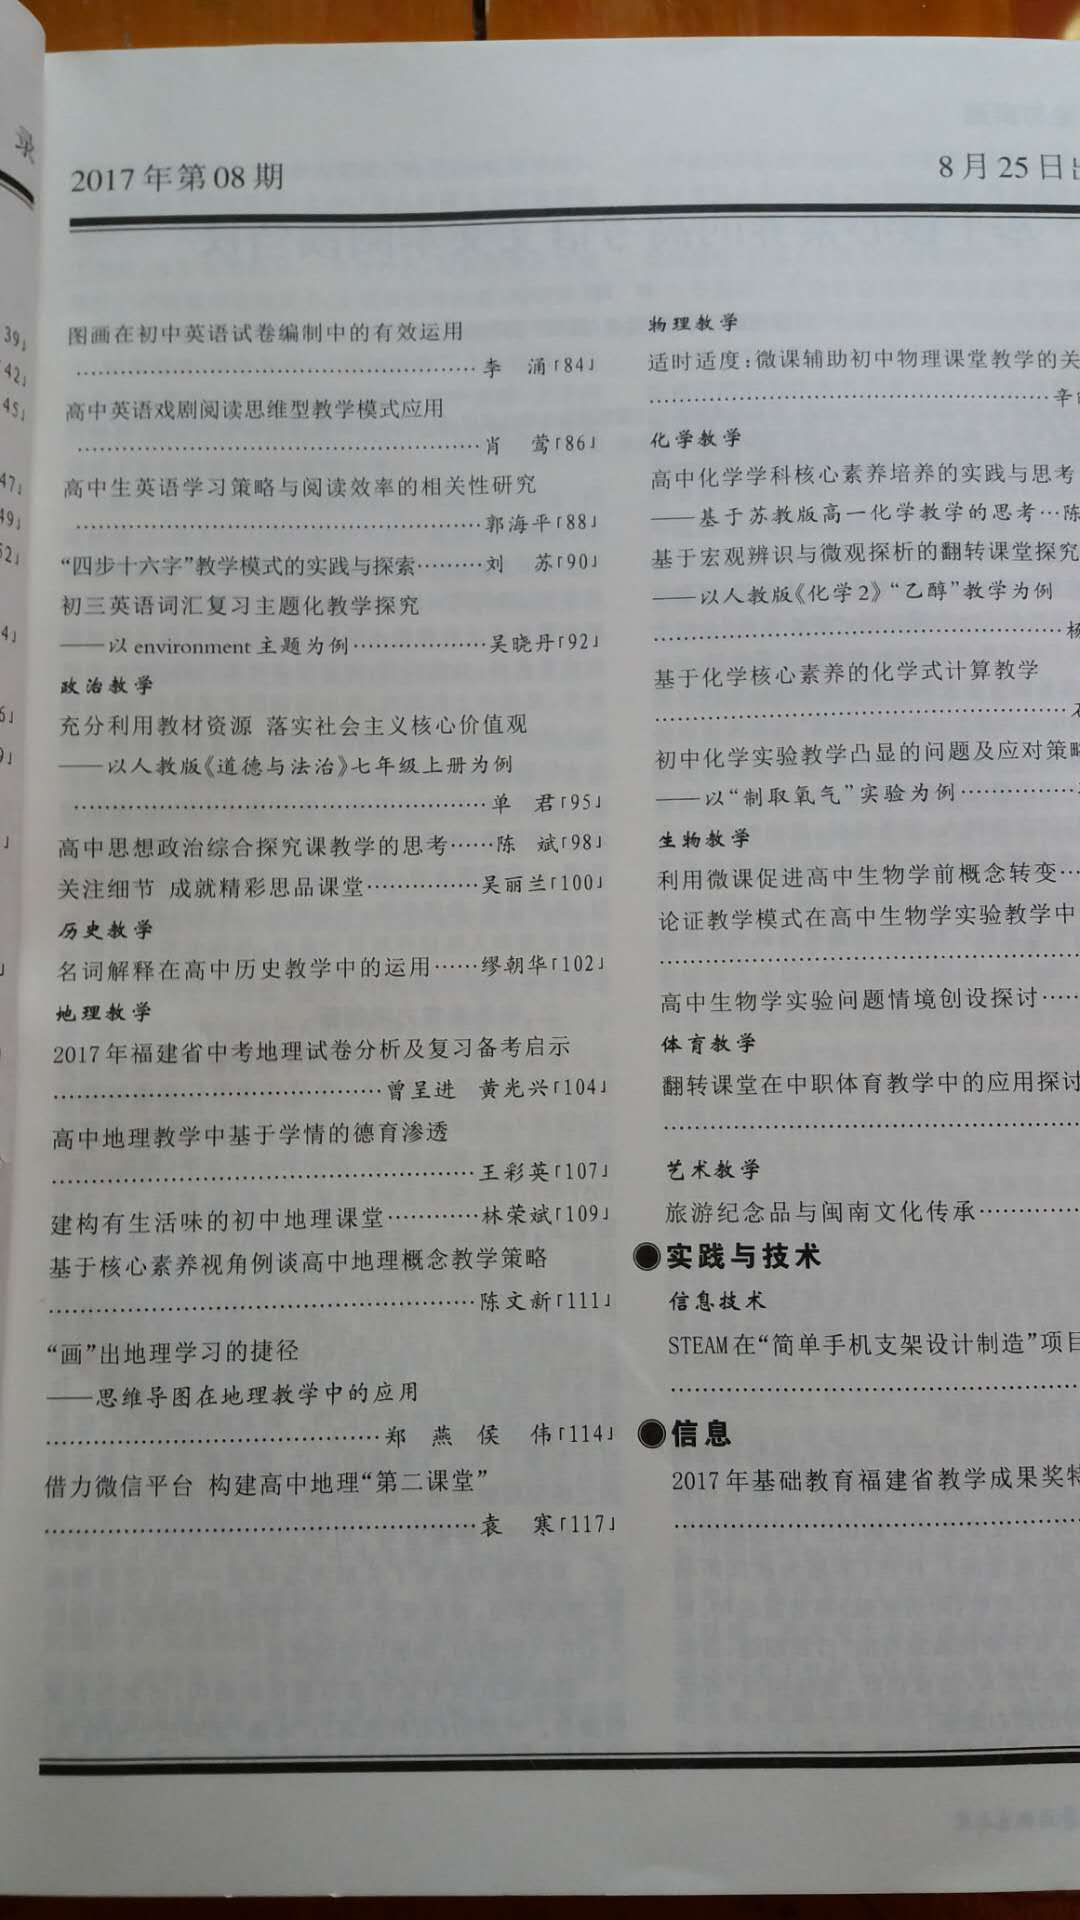 2017年第08期
8月25日出
图画在初中英语试卷编制中的有效运用
李 涌「84」
高中英语戏剧阅读思维型教学模式应用
肖 莺「86」
高中生英语学习策略与阅读效率的相关性研究
郭海平「88」
“四步十六字”教学模式的实践与探索………刘 苏「90」
初三英语词汇复习主题化教学探究
——以environment主题为例………………吴晓丹「92」
政治教学
充分利用教材资源 落实社会主义核心价值观
——以人教版《道德与法治》七年级上册为例
单 君「95」
高中思想政治综合探究课教学的思考……陈 斌「98」
关注细节 成就精彩思品课堂……………吴丽兰「100」
历史教学
名词解释在高中历史教学中的运用……缪朝华「102」
地理教学
2017年福建省中考地理试卷分析及复习备考启示
曾呈进 黄光兴「104」
高中地理教学中基于学情的德育渗透
王彩英「107」
建构有生活味的初中地理课堂…………林荣斌「109」
基于核心素养视角例谈高中地理概念教学策略
陈文新「111」
“画”出地理学习的捷径
——思维导图在地理教学中的应用
郑 燕 侯 伟「114」
借力微信平台 构建高中地理“第二课堂”
袁 寒「117」
物理教学
适时适度:微课辅助初中物理课堂教学的关
辛
化学教学
高中化学学科核心素养培养的实践与思考
——基于苏教版高一化学教学的思考…陈
基于宏观辨识与微观探析的翻转课堂探究
——以人教版《化学2》“乙醇”教学为例
杨
基于化学核心素养的化学式计算教学
初中化学实验教学凸显的问题及应对策略
——以“制取氧气”实验为例……………
生物教学
利用微课促进高中生物学前概念转变…
论证教学模式在高中生物学实验教学中
高中生物学实验问题情境创设探讨……
体育教学
翻转课堂在中职体育教学中的应用探讨
艺术教学
旅游纪念品与闽南文化传承…………
●实践与技术
信息技术
STEAM在“简单手机支架设计制造”项目
●信息
2017年基础教育福建省教学成果奖特
录
39」
42」
45」
47」
49」
52」
4」
6」
9」